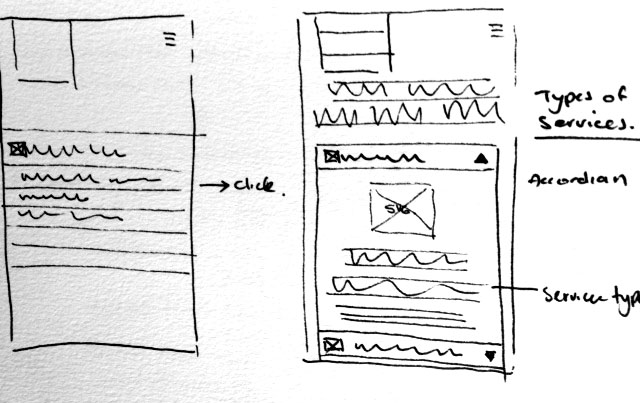 click.
SVG
Types of
Services.
Accordian
Service typ